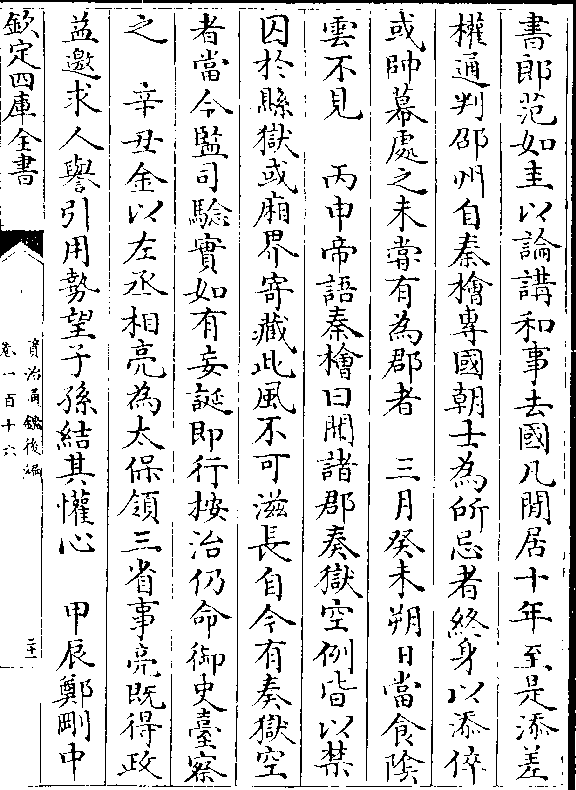 書郎范如圭以論講和事去國凡閒居十年至是添差
權通判邵州自秦檜專國朝士為所忌者終身以添倅
或帥幕處之未嘗有為郡者　三月癸未朔日當食隂
雲不見　丙申帝語秦檜曰聞諸郡奏獄空例皆以禁
囚於縣獄或廂界寄藏此風不可滋長自今有奏獄空
者當令監司驗實如有妄誕即行按治仍命御史臺察
之　辛丑金以左丞相亮為太保領三省事亮既得政
益邀求人譽引用勢望子孫結其懽心　甲辰鄭剛中
欽定四庫全書
資治通鑑後編
卷一百十六